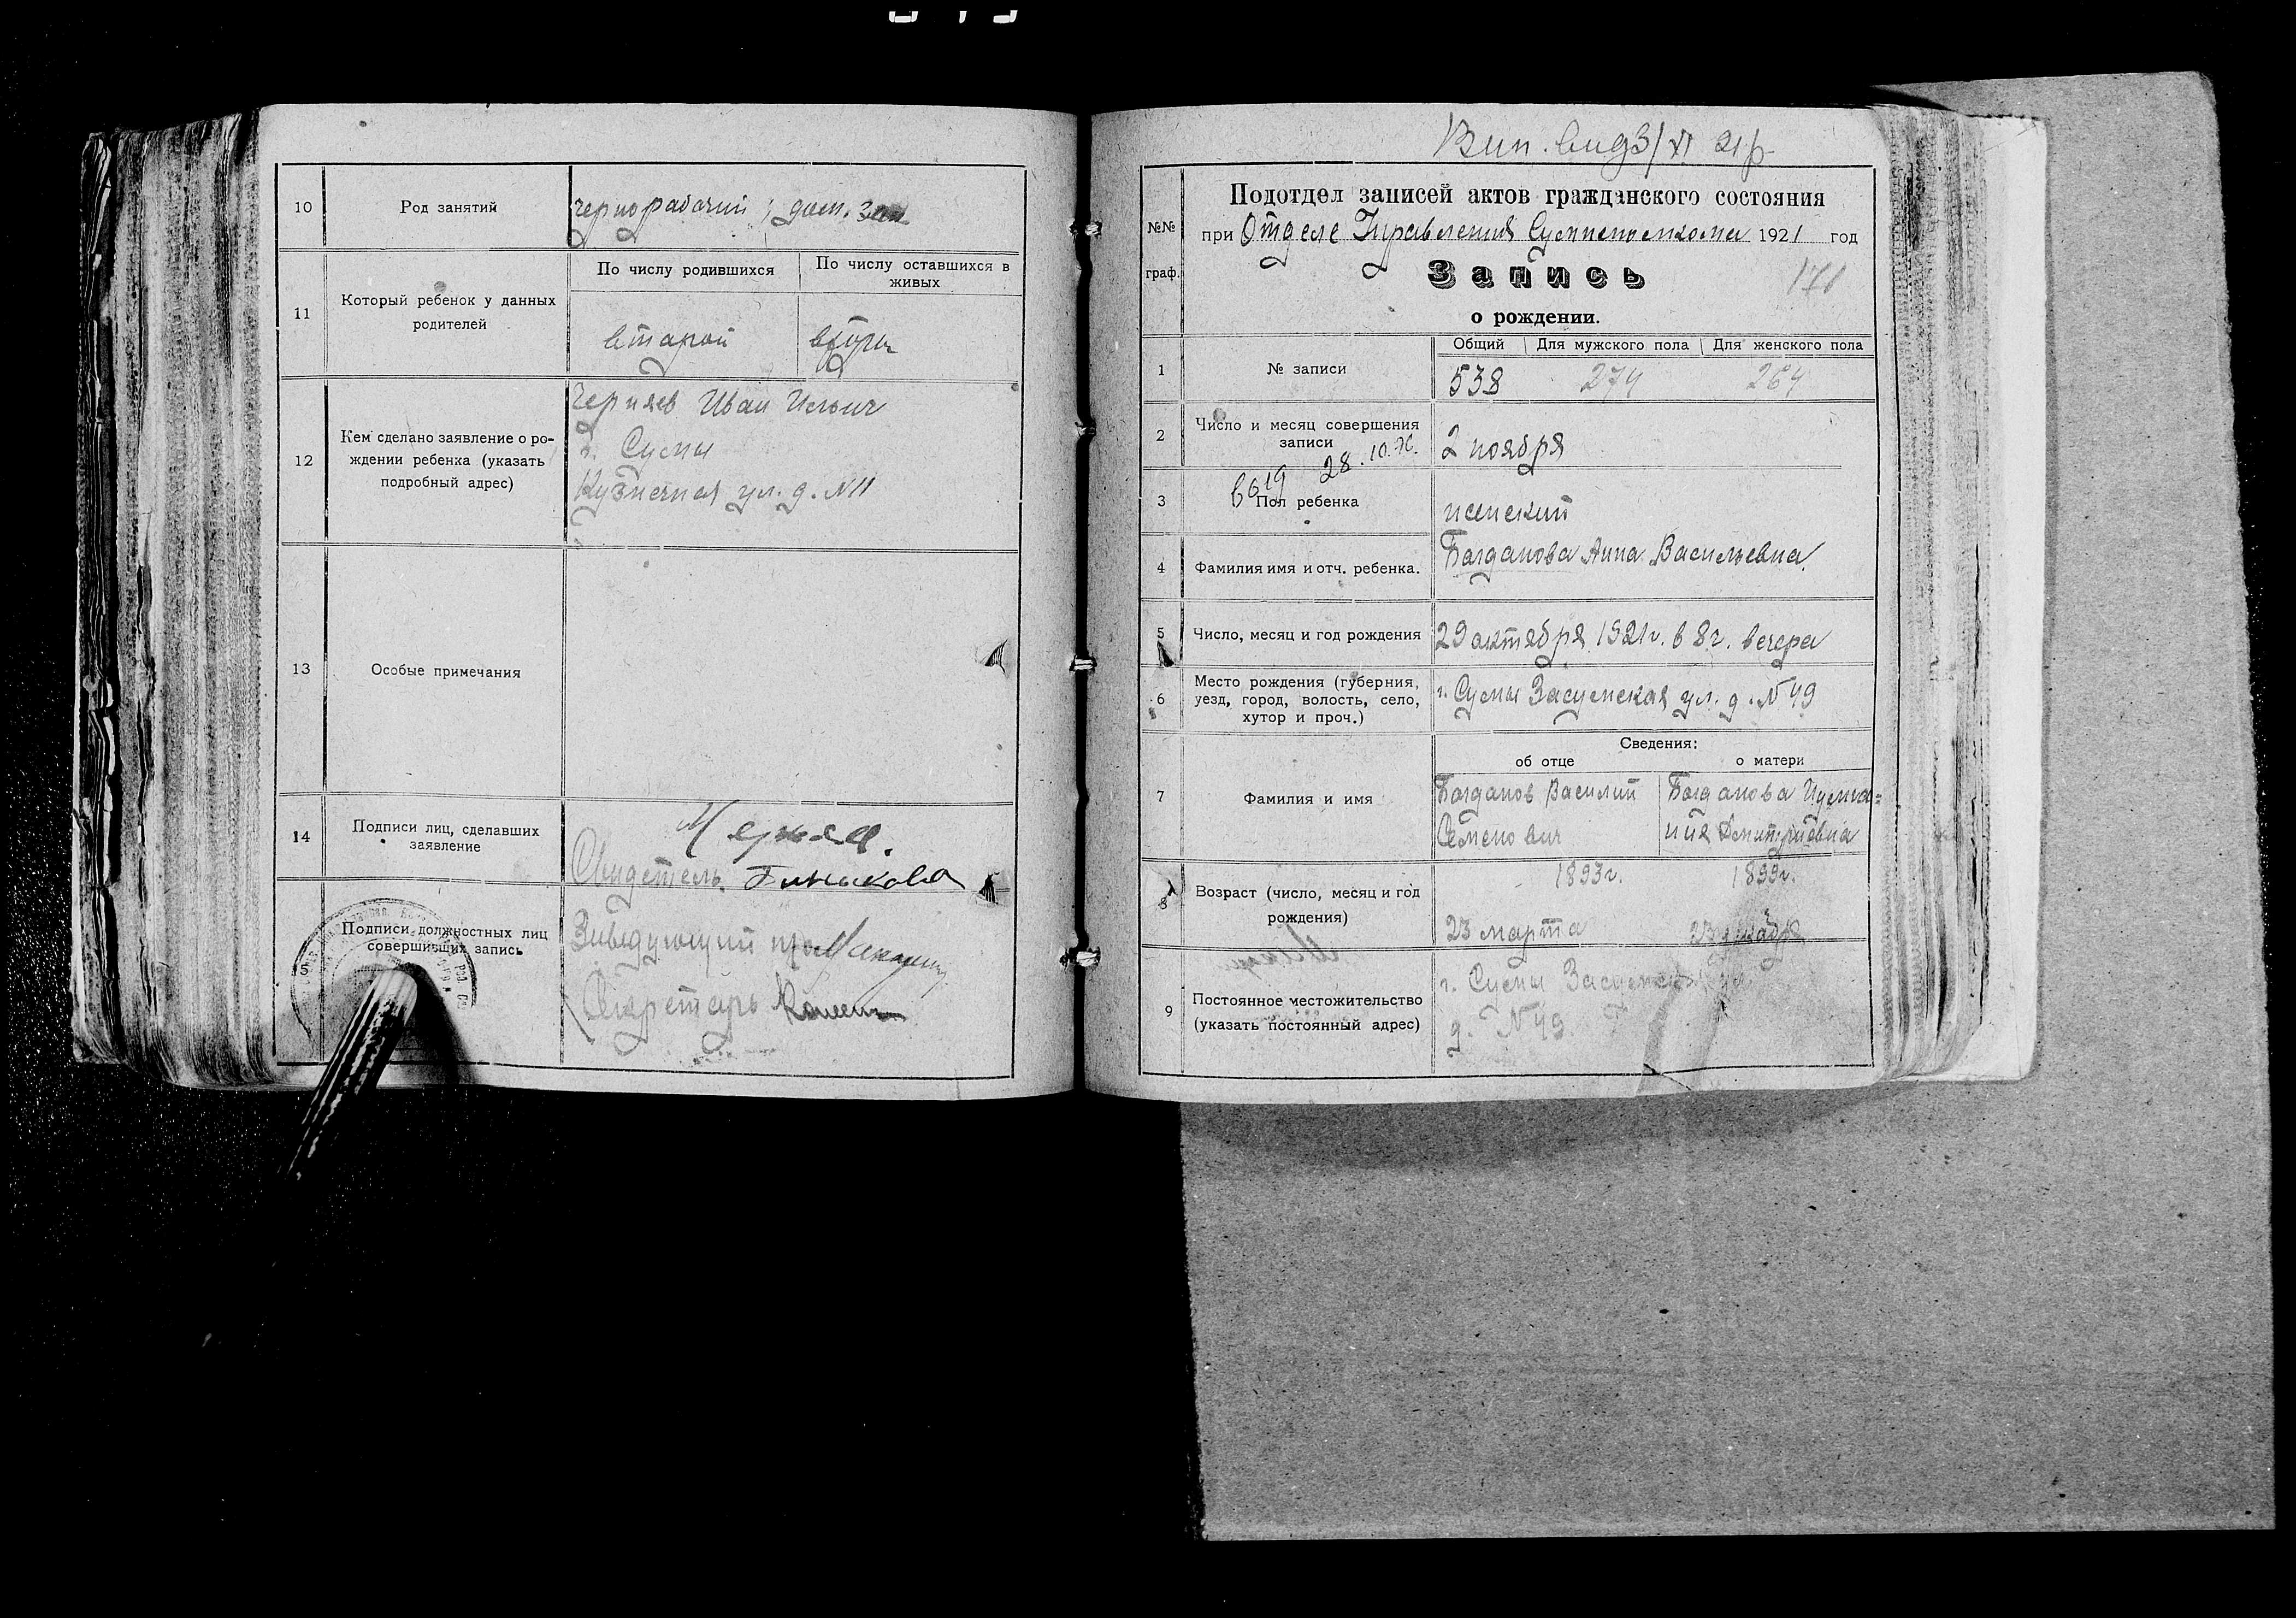 10 Род занятий чернорабочий ; дом. зан
11 Который ребенок у данных родителей
По числу родившихся
По числу оставшихся в живых
второй
12 Кем сделано заявление о ро-
ждении ребенка (указать
подробный адрес)
Черняев Иван Ильич
г. Сумы
Кузнечная ул. д. №11
13 Особые примечания
14 Подписи лиц, сделавших
заявление
Свидетель
15 Подписи должностных лиц
совершивших запись
Заведующий
Секретарь
Вип. вид 3/XI 21р
№№
граф.
Подотдел записей актов гражданского состояния
при Отделе Управления 1921 год
Запись
о рождении.
1 № записи
Общий Для мужского пола Для женского пола
538 274 264
2 Число и месяц совершения
записи
2 ноября
28.10.
3 Пол ребенка женский
4 Фамилия имя и отч. ребенка. Богданова Анна Васильевна
5 Число, месяц и год рождения 29 октября 1921г. в 8 ч. вечера
6 Место рождения (губерния,
уезд, город, волость, село,
хутор и проч.)
г. Сумы Засумская ул. д. №49
Сведения:
об отце о матери
7 Фамилия и имя
Богданов Василий
Семенович
Богданова
Дмитриевна
8 Возраст (число, месяц и год
рождения)
1893г.
23 марта
1899г.
23 декабря
9 Постоянное местожительство
(указать постоянный адрес)
г. Сумы Засумская ул.
д. №49